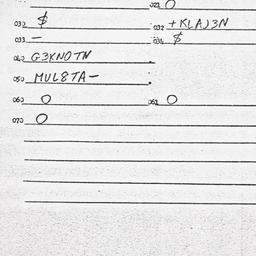 021 O
030 $ 032 +KLAJ3N
033 – 034 $
040 G3XNOTN
050 MUL8TA–
060 O 061 O
070 O